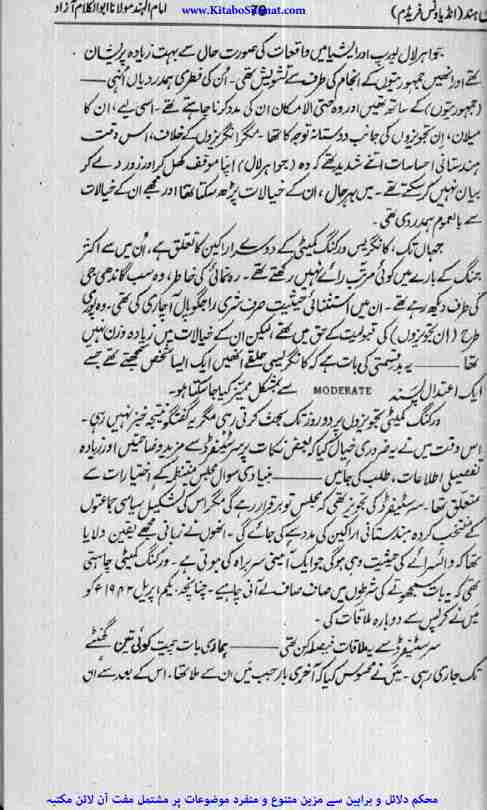 ی ہند (انڈیا ونس فریڈم) 79 امام الہند مولانا ابوالکلام آزاد
www.KitaboSunnat.com
جواہر لال یورپ اور ایشیا میں واقعات کی صورت حال سے بہت زیادہ پریشان
تھے اور انھیں جمہوریتوں کے انجام کی طرف سے تشویش تھی۔ ان کی فطری ہمدردیاں انہی ———
(جمہوریتوں) کے ساتھ تھیں اور وہ حتی الامکان ان کی مدد کرنا چاہتے تھے۔ اسی لیے، ان کا
میلان، ان تجویزوں کی جانب دوستانہ توجہ کا تھا۔ مگر انگریزوں کے خلاف، اس وقت
ہندستانی احساسات اتنے شدید تھے کہ وہ (جواہر لال) اپنا موقف کھل کر اور زور دے کر
بیان نہیں کر سکتے تھے۔ میں بہر حال، ان کے خیالات پڑھ سکتا تھا اور مجھے ان کے خیالات
سے بالعموم ہمدردی تھی۔
جہاں تک، کانگریس ورکنگ کمیٹی کے دوسرے اراکین کا تعلق ہے، اُن میں سے اکثر
جنگ کے بارے میں کوئی مرتب رائے نہیں رکھتے تھے۔ رہنمائی کی خاطر، وہ سب گاندھی جی
کی طرف دیکھ رہے تھے۔ ان میں استثنائی حیثیت صرف شری راجگوپال آچاری کی تھی۔ وہ پوری
طرح (ان تجویزوں) کی قبولیت کے حق میں تھے، لیکن ان کے خیالات میں زیادہ وزن نہیں
تھا ——— یہ بدقسمتی کی بات ہے کہ کانگریسی حلقے انھیں ایک ایسا شخص سمجھتے تھے جسے
ایک اعتدال پسند MODERATE سے بمشکل ممیز کیا جا سکتا ہو۔
ورکنگ کمیٹی تجویزوں پر دو روز تک بحث کرتی رہی مگر یہ گفتگو نتیجہ خیز نہیں رہی۔
اس وقت میں نے یہ ضروری خیال کیا کہ بعض نکات پر سر سٹیفرڈ سے مزید وضاحتیں اور زیادہ
تفصیلی اطلاعات، طلب کی جائیں ——— بنیادی سوال مجلس منتظمہ کے اختیارات سے
متعلق تھا۔ سر سٹیفرڈ کی تجویز تھی کہ مجلس تو برقرار رہے گی مگر اس کی تشکیل سیاسی جماعتوں
کے منتخب کردہ ہندستانی اراکین کی مدد سے کی جائے گی۔ انھوں نے زبانی مجھے یقین دلایا
تھا کہ وائسرائے کی حیثیت وہی ہوگی جو ایک آئینی سربراہ کی ہوتی ہے۔ ورکنگ کمیٹی چاہتی
تھی کہ یہ بات سمجھوتے کی شرطوں میں صاف صاف لے آنی چاہیے۔ چنانچہ، یکم اپریل ۱۹۴۲ء کو
میں نے کرپس سے دوبارہ ملاقات کی۔
سر سٹیفرڈ سے یہ ملاقات فیصلہ کن تھی ——— ہماری بات چیت کوئی تین گھنٹے
تک جاری رہی۔ میں نے محسوس کیا کہ آخری بار جب میں ان سے ملا تھا، اس کے بعد سے اُن
محکم دلائل و براہین سے مزین متنوع و منفرد موضوعات پر مشتمل مفت آن لائن مکتبہ